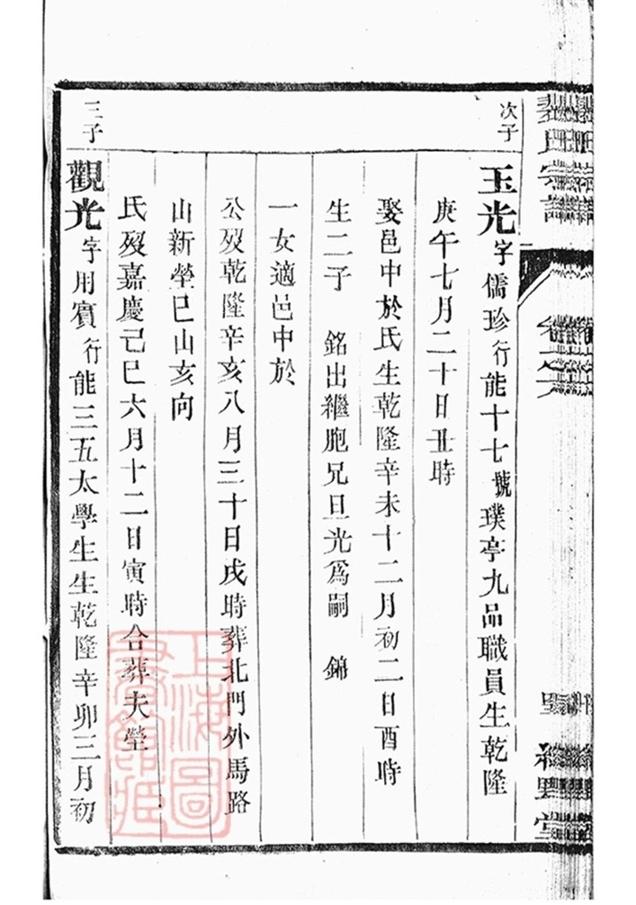 次子
玉光字儒珍行能十七號璞亭九品職員生乾隆
庚午七月二十日丑時
娶邑中於氏生乾隆辛未十二月初二日酉時
生二子 銘出繼胞兄旦光爲嗣 錦
一女適邑中於
公歿乾隆辛亥八月三十日戌時葬北門外馬路
山新塋巳山亥向
氏歿嘉慶己巳六月十二日寅時合葬夫塋
三子
觀光字用賓行能三五太學生生乾隆辛卯三月初
氏宗譜
上海圖書館藏